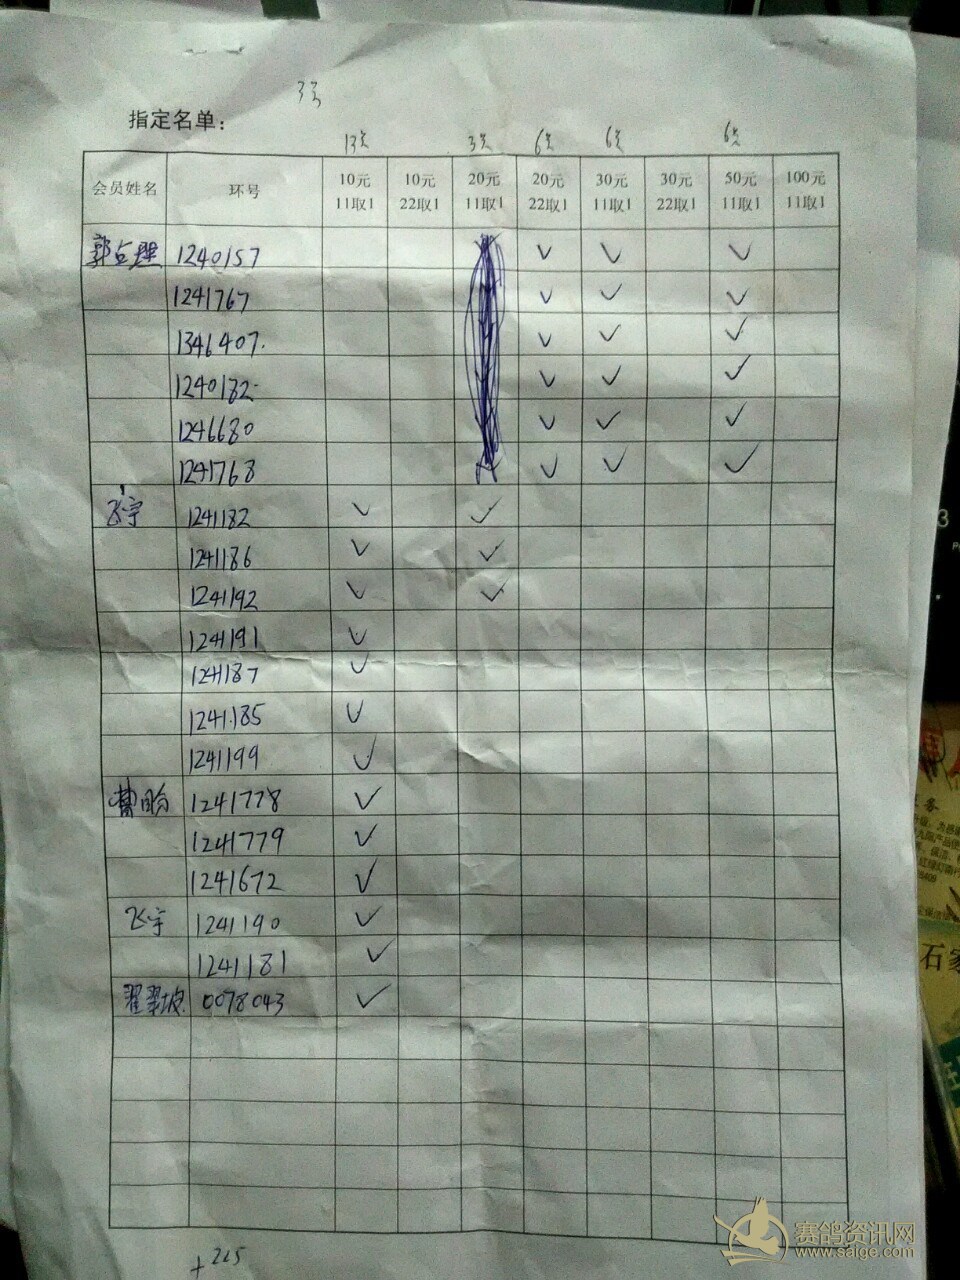 3号
指定名单：
13只 3只 6只 6只 6只
会员姓名 环号 10元 11取1 10元 22取1 20元 11取1 20元 22取1 30元 11取1 30元 22取1 50元 11取1 100元 11取1
1240157 ✓ ✓ ✓
1241767 ✓ ✓ ✓
1346407 ✓ ✓ ✓
1240182 ✓ ✓ ✓
1246680 ✓ ✓ ✓
1241768 ✓ ✓ ✓
飞宇 1241182 ✓ ✓
1241186 ✓ ✓
1241192 ✓ ✓
1241191 ✓
1241187 ✓
1241185 ✓
1241199 ✓
1241778 ✓
1241779 ✓
1241672 ✓
飞宇 1241190 ✓
1241181 ✓
0078043 ✓
+225
石家
赛鸽资讯网
www.saige.com